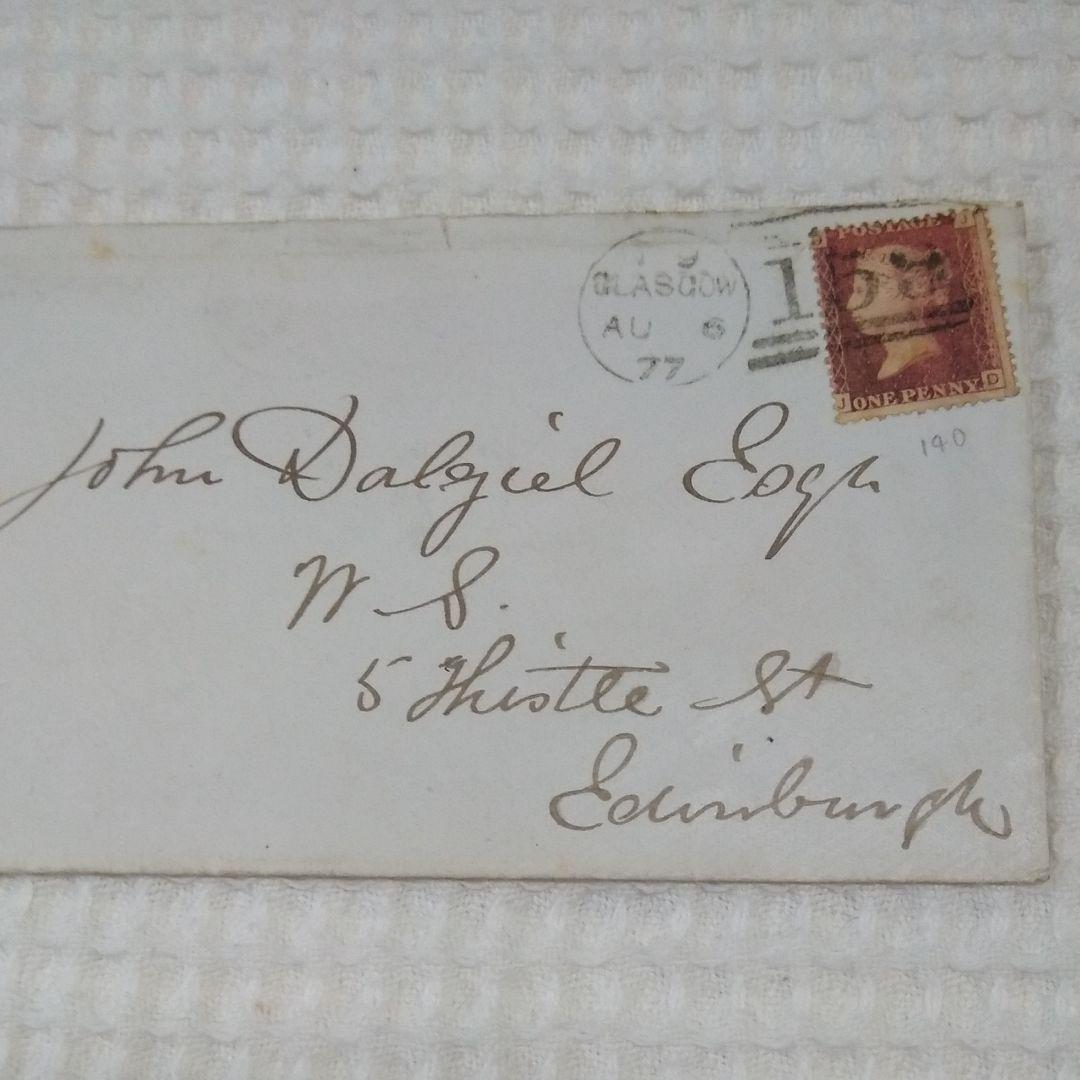 GLASGOW
AU 6
77
159
POSTAGE
J D
ONE PENNY
140
John Dalziel Esqr
W. S.
5 Thistle St
Edinburgh